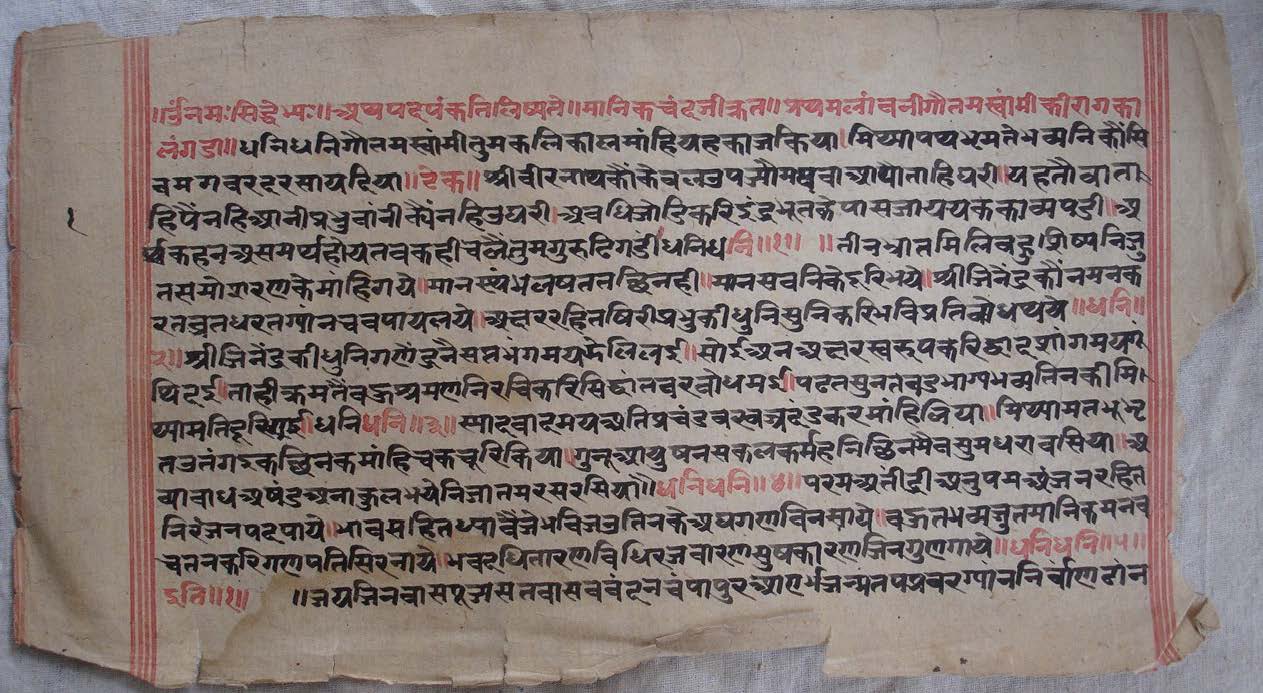 ॥उंनमःसिद्धेभ्यः॥अथपदपंकतिलिष्यते॥मानिकचंदजीकृत॥प्रथमलांवनीगौतमस्वांमीकीरागका
लंगडा॥धनिधनिगौतमस्वांमीतुमकलिकालमांहियहकाजकिया।मिथ्यापथभ्रमतेभव्यनिकौंसि
वमगवरदरसायदिया॥टेक॥श्रीवीरनाथकौंकेवलउपज्यौमघवाआयौताहिघरी।यहतौवाता
१
हिपैंनहिआनीप्रभुवांनीक्यौंनहिउघरी।अवधिजोडिकरिइंद्रभूतकेपासजाययककाव्यपढी॥अ
र्थकहनअसमर्थहोयतवकहीचलैतुमगुरुढिगडी॥धनिधनि॥१॥ ॥तीनभ्रातमिलिवहुशिष्यनिजु
तसमोशरणकेमांहिगये॥मानस्थंभलषततछिनही॥मानसवनिके श्रीजिनेंद्रकौंनमनक
रतव्रतधरतग्यानचवपायलये॥अक्षररहितषिरीप्रभुकीधुनिसुनिकरिभविप्रतिवोध ॥धनि॥
२॥श्रीजिनेंद्रकीधुनिगणेंद्रनैसप्तभंगमय सोईअनअक्षरस्वरूपकरिद्वादशांगमय
थिदई॥ताहीक्रमतैंवहु निरचिकरिसिद्धांतवरवोधमई॥पढतसुनतवडभागभव्यतिनकीमि
थ्यामति धनिधनि॥३॥स्यादवादमयअतिप्रचंडवस्वज्रदंडकरमांहिलिया॥मिथ्यामत
छिनकमांहिचकचूरिकिया।गुन आयुषनसकलकर्महनि अ
व्यावाधअषंडअनाकुलभयेनिजातमरसरसिया॥धनिधनि॥४॥परमअतींद्रीअनुपमअंजनरहित
निरंजनपदपाये॥भावसहितध्यावैंजेभविजनतिनकेअघगणविनसाये॥वहुतभव्यजुतमानिकमनव
चतनकरिगणपतिसिरनाये॥भवदधितारणविधिरजवारणसुषकारणजिनगुणगाये॥धनिधनि॥५॥
इति॥१॥ ॥जयजिनवासपूज्यसतवासववंदनचंपापुर ग्यांननिर्वाण